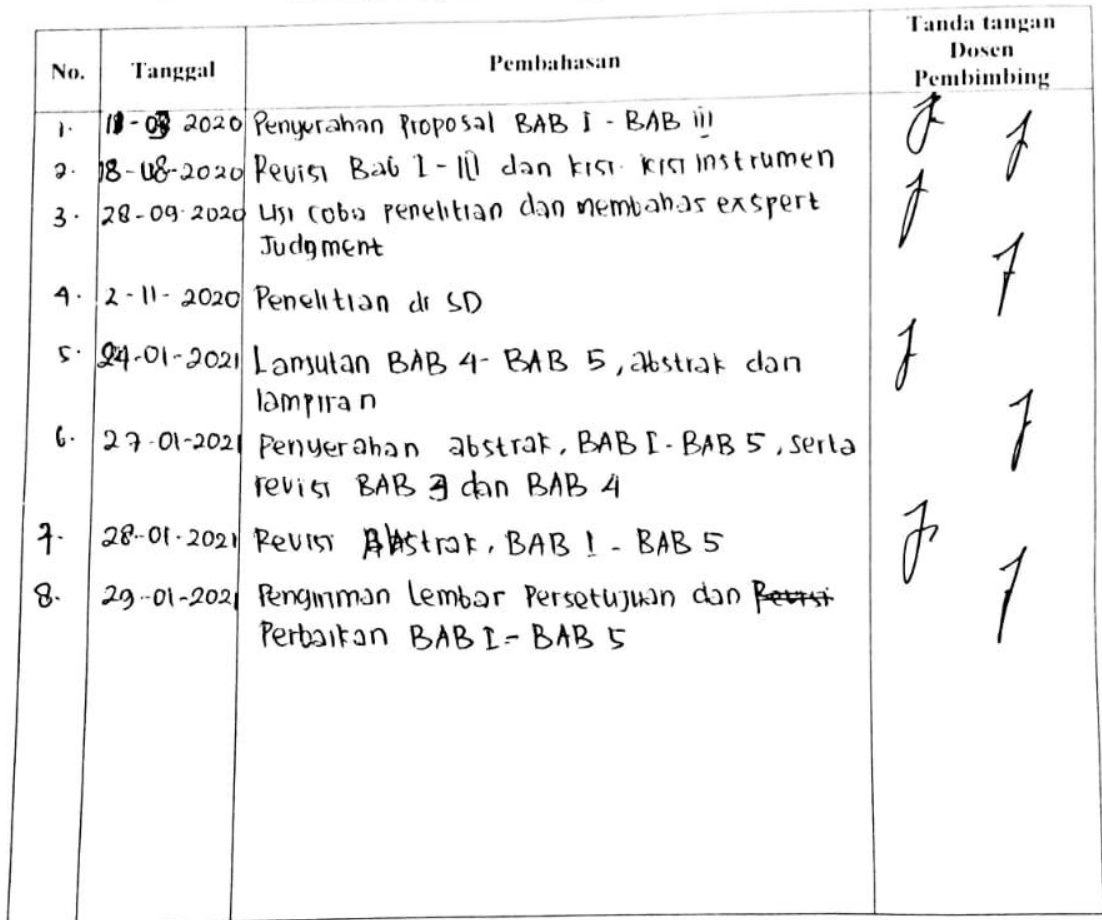 No. Tanggal Pembahasan Tanda tangan
Dosen
Pembimbing
1. 2020 Penyerahan Proposal BAB I - BAB iii
2. 18-08-2020 Revisi Bab I - III dan kisi-kisi instrumen
3. 28-09-2020 Uji coba penelitian dan membahas exspert
Judgment
4. 2-11-2020 Penelitian di SD
5. 24-01-2021 Lanjutan BAB 4- BAB 5, abstrak dan
lampiran
6. 27-01-2021 Penyerahan abstrak, BAB I - BAB 5, serta
revisi BAB 3 dan BAB 4
7. 28-01-2021 Revisi Abstrak, BAB I - BAB 5
8. 29-01-2021 Pengiriman Lembar Persetujuan dan Revisi
Perbaikan BAB I - BAB 5